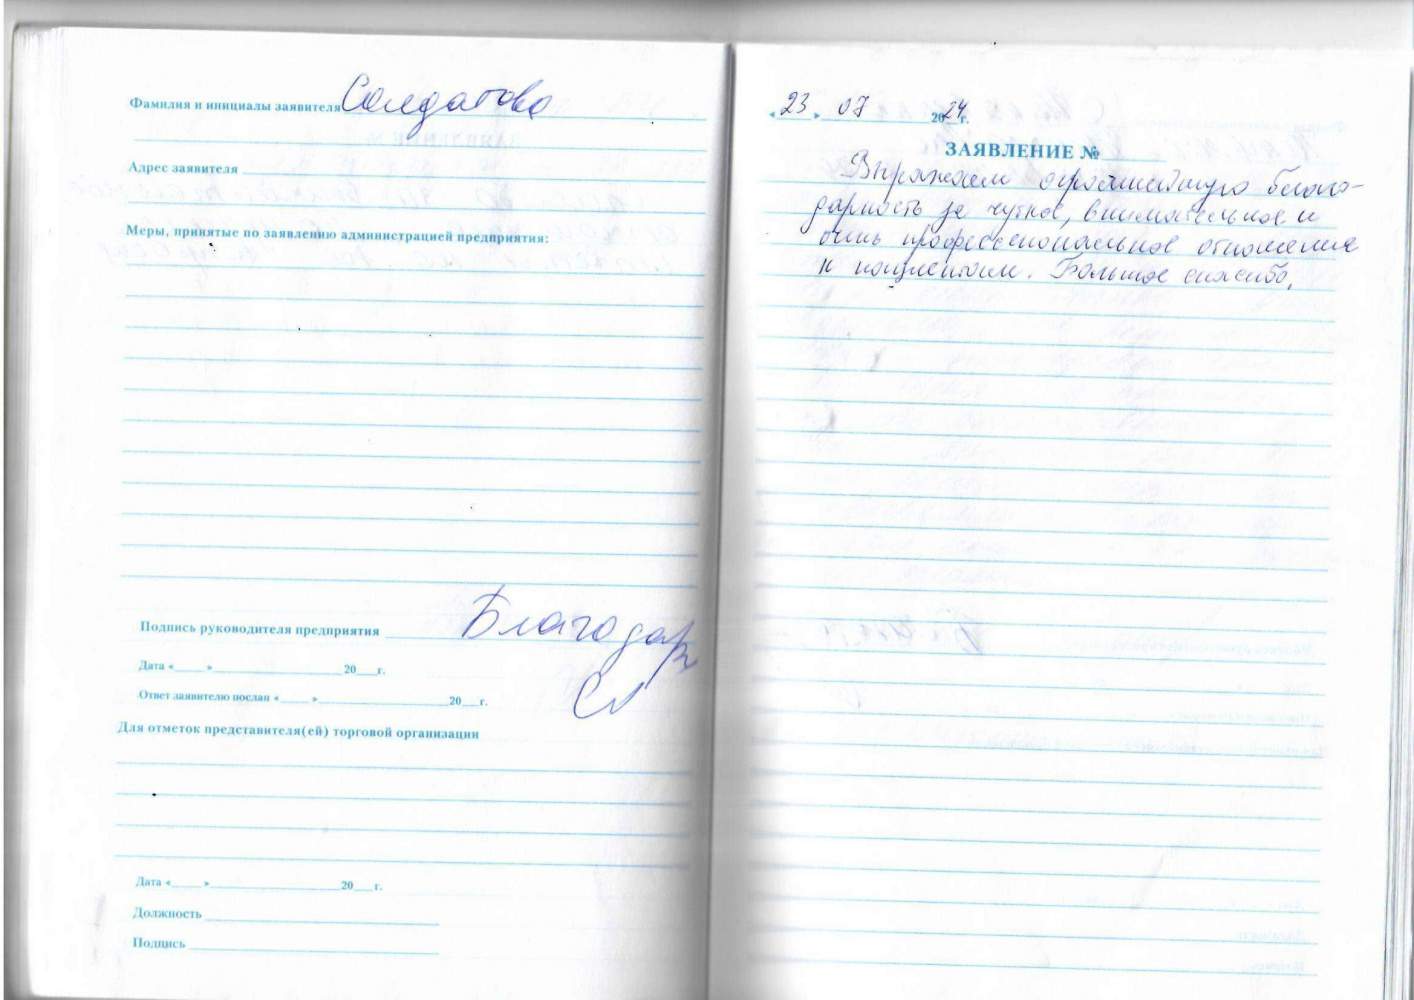 Фамилия и инициалы заявителя Солдатова
Адрес заявителя
Меры, принятые по заявлению администрацией предприятия:
Подпись руководителя предприятия Благодар
Дата «____» ____ 20__г.
Ответ заявителю послан «____» ____ 20__г.
Для отметок представителя(ей) торговой организации
Дата «____» ____ 20__г.
Должность
Подпись
«23» 07 2024г.
ЗАЯВЛЕНИЕ №
Выражаем огромнейшую благо-
дарность за чуткое, внимательное и
очень профессиональное отношение
к пациентам. Большое спасибо.